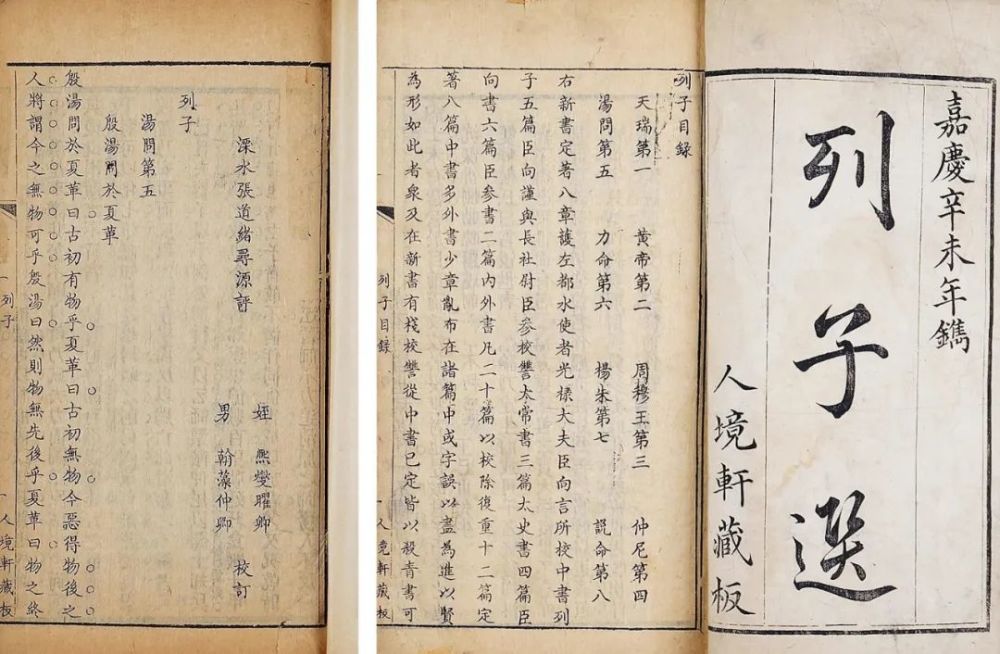 嘉慶辛未年鐫
列子選
人境軒藏板
列子目録
天瑞第一 黃帝第二 周穆王第三 仲尼第四
湯問第五 力命第六 楊朱第七 說命第八
右新書定著八章護左都水使者光祿大夫臣向言所校中書列
子五篇臣向謹與長社尉臣參校讐太常書三篇太史書四篇臣
向書六篇臣參書二篇內外書凡二十篇以校除復重十二篇定
著八篇中書多外書少章亂布在諸篇中或字誤以盡為進以賢
為形如此者衆及在新書有棧校讐從中書已定皆以殺青書可
列子目錄 人境軒藏板
姪 熙燮曜卿
溧水張道緒尋源評 校訂
男 翰藻仲卿
列子
湯問第五
殷湯問於夏革
殷湯問於夏革曰古初有物乎夏革曰古初無物今惡得物後之
人將謂今之無物可乎殷湯曰然則物無先後乎夏革曰物之終
列子 人境軒藏板